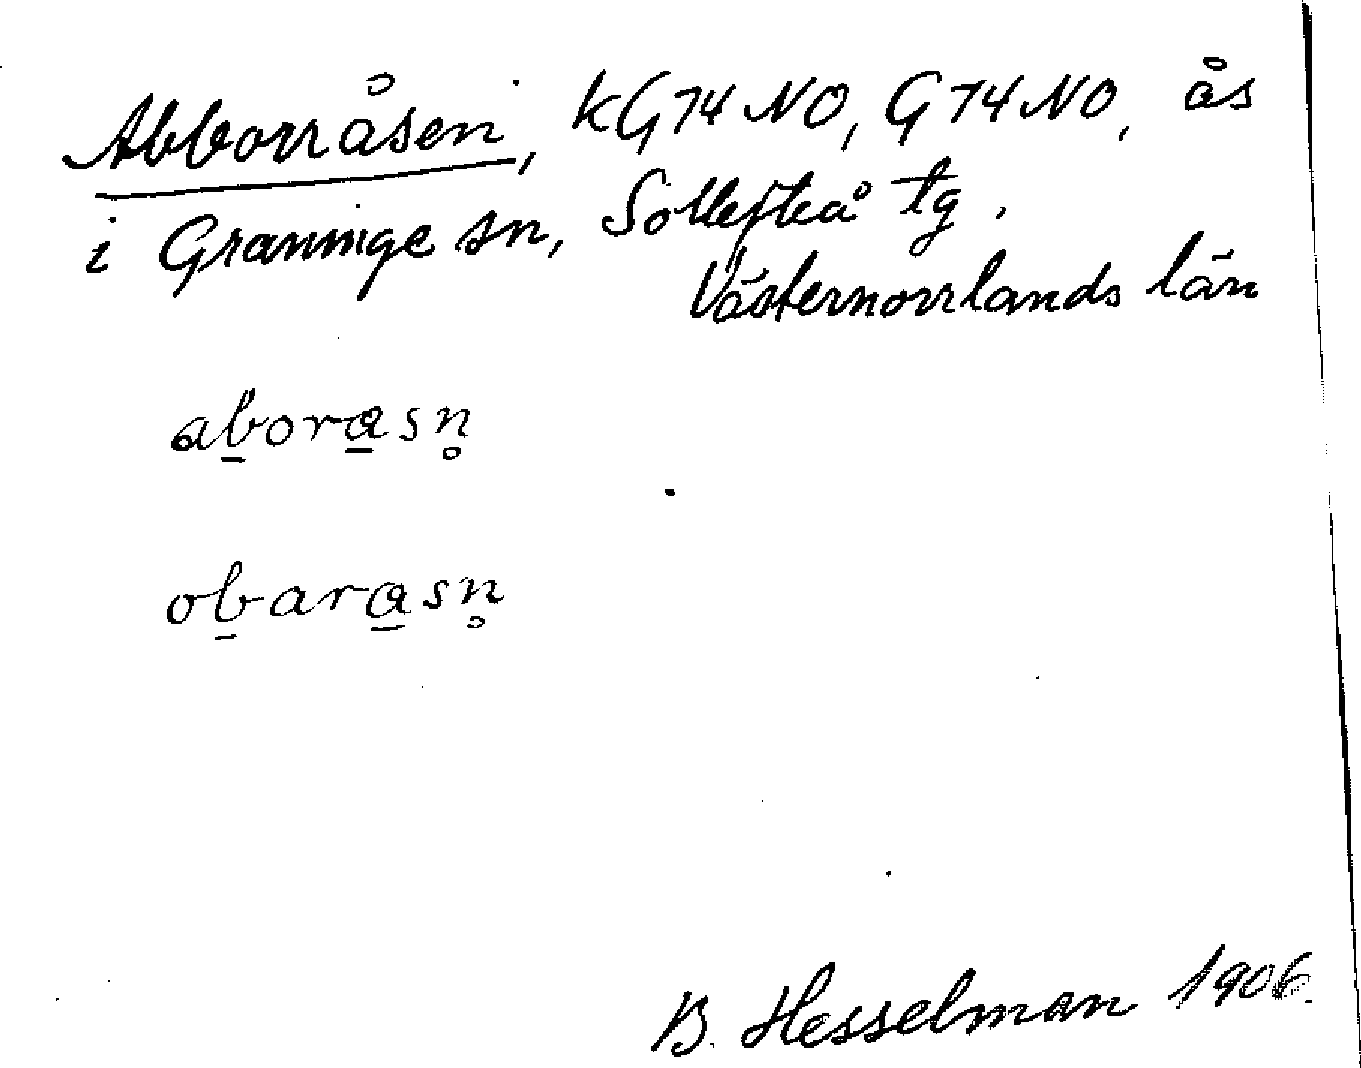 Abborråsen, kG74NO, G74NO, ås
i Graninge sn, Sollefteå tg.
Västernorrlands län
ab̲ora̲sn̥
ob̲ara̲sn̥
B. Hesselman 1906.